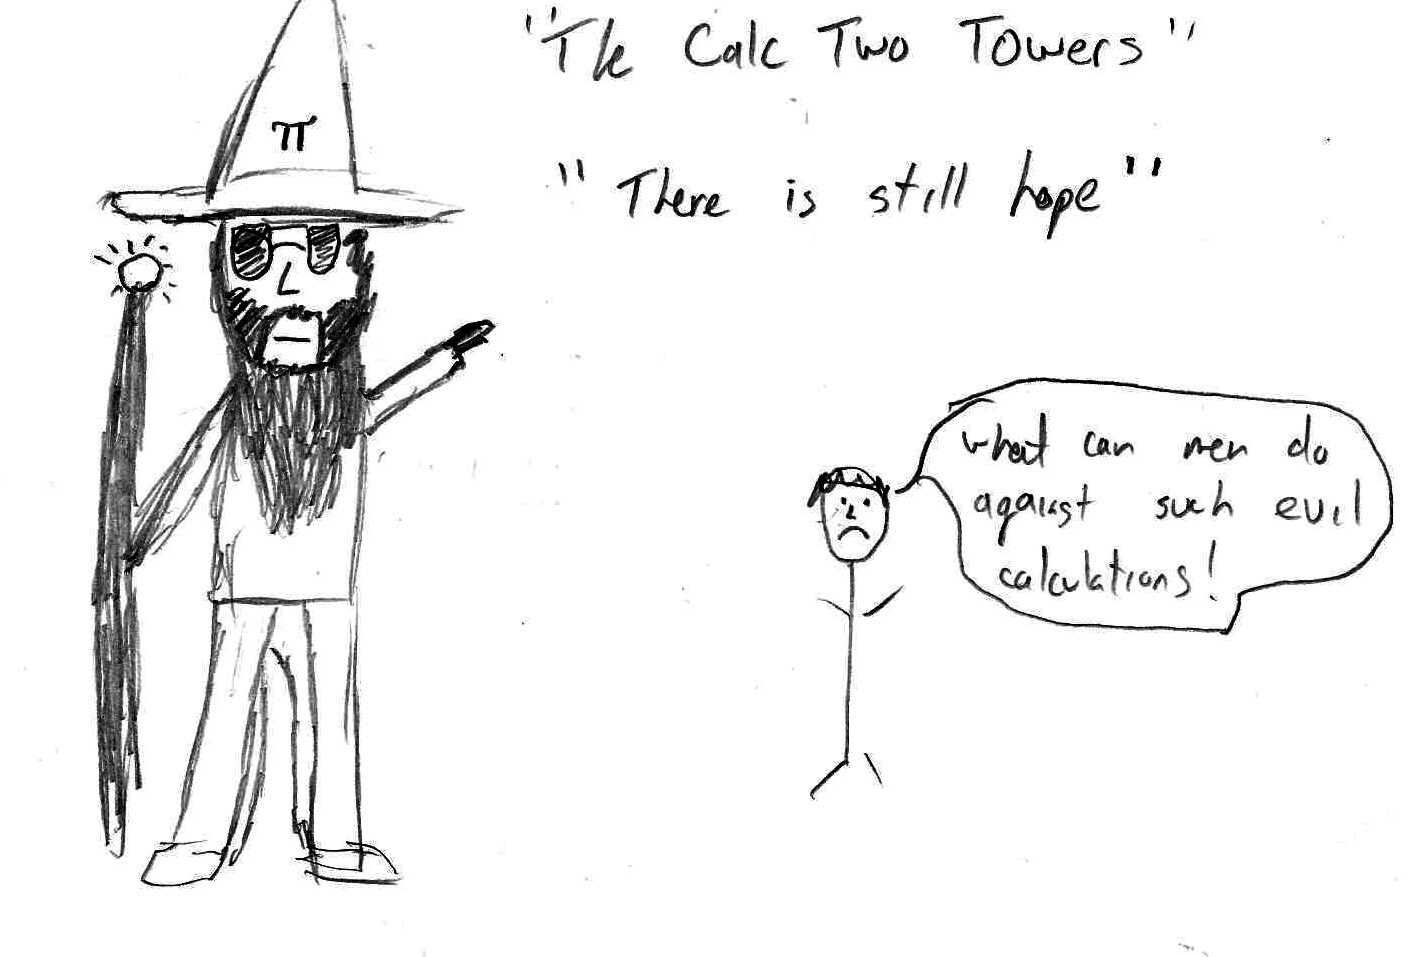 "The Calc Two Towers"
π
"There is still hope"
what can men do
against such evil
calculations!